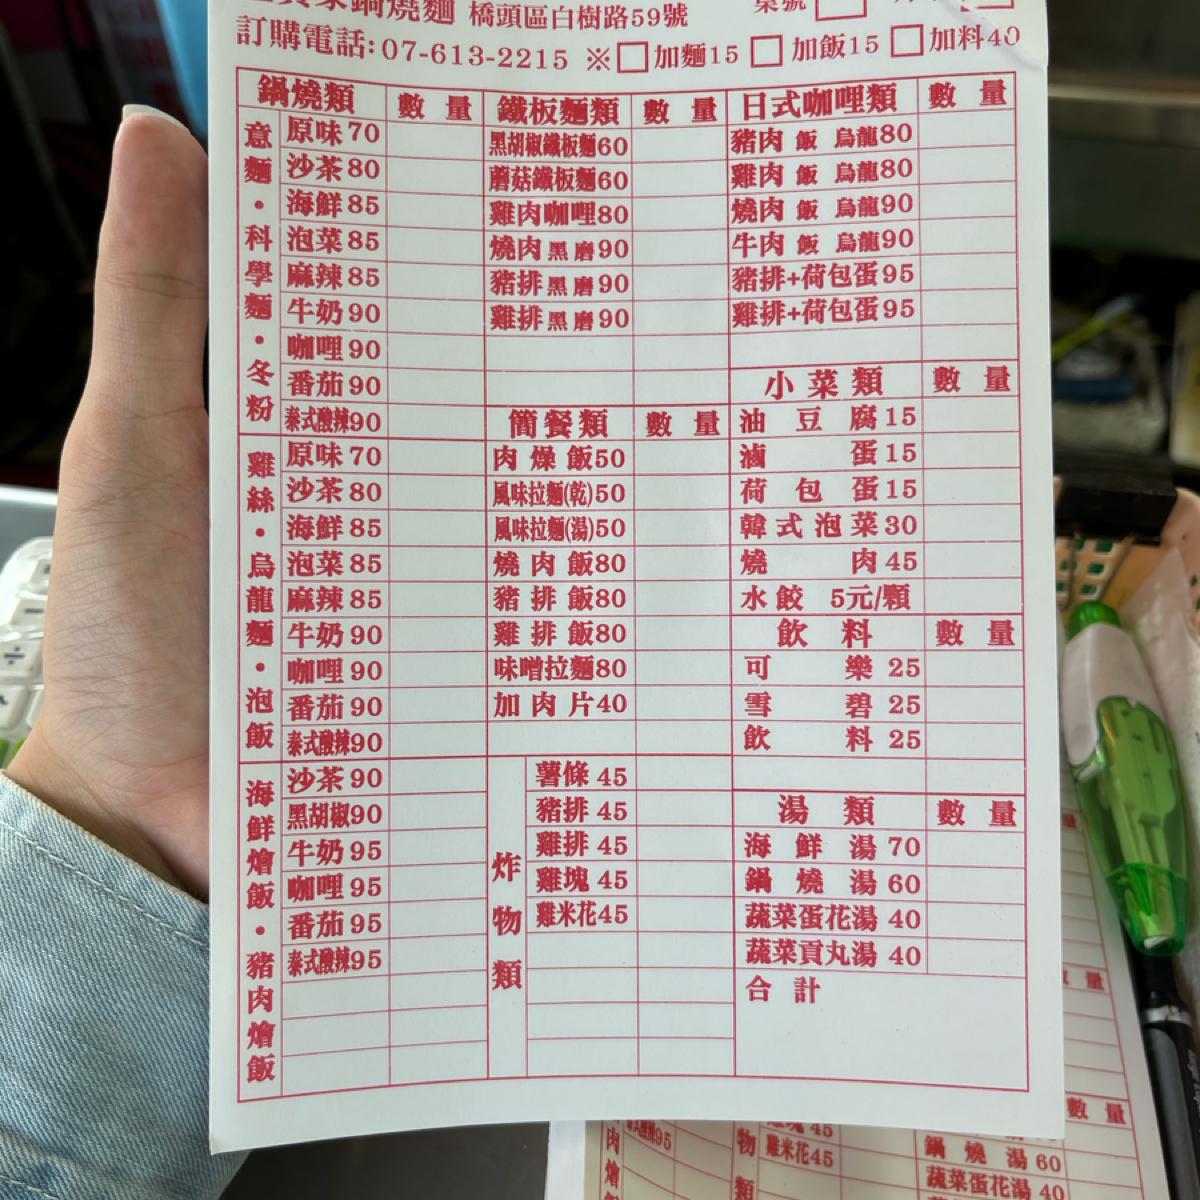 鍋燒麵 橋頭區白樹路59號 桌號
訂購電話:07-613-2215 ※□加麵15 □加飯15 □加料40
鍋燒類 數量
意麵・科學麵・冬粉
原味70
沙茶80
海鮮85
泡菜85
麻辣85
牛奶90
咖哩90
番茄90
泰式酸辣90
雞絲・烏龍麵・泡飯
原味70
沙茶80
海鮮85
泡菜85
麻辣85
牛奶90
咖哩90
番茄90
泰式酸辣90
海鮮燴飯・豬肉燴飯
沙茶90
黑胡椒90
牛奶95
咖哩95
番茄95
泰式酸辣95
鐵板麵類 數量
黑胡椒鐵板麵60
蘑菇鐵板麵60
雞肉咖哩80
燒肉黑磨90
豬排黑磨90
雞排黑磨90
簡餐類 數量
肉燥飯50
風味拉麵(乾)50
風味拉麵(湯)50
燒肉飯80
豬排飯80
雞排飯80
味噌拉麵80
加肉片40
炸物類
薯條45
豬排45
雞排45
雞塊45
雞米花45
日式咖哩類 數量
豬肉 飯 烏龍80
雞肉 飯 烏龍80
燒肉 飯 烏龍90
牛肉 飯 烏龍90
豬排+荷包蛋95
雞排+荷包蛋95
小菜類 數量
油豆腐15
滷蛋15
荷包蛋15
韓式泡菜30
燒肉45
水餃 5元/顆
飲料 數量
可樂25
雪碧25
飲料25
湯類 數量
海鮮湯70
鍋燒湯60
蔬菜蛋花湯40
蔬菜貢丸湯40
合計
數量
雞塊45
雞米花45
鍋燒湯60
蔬菜蛋花湯40